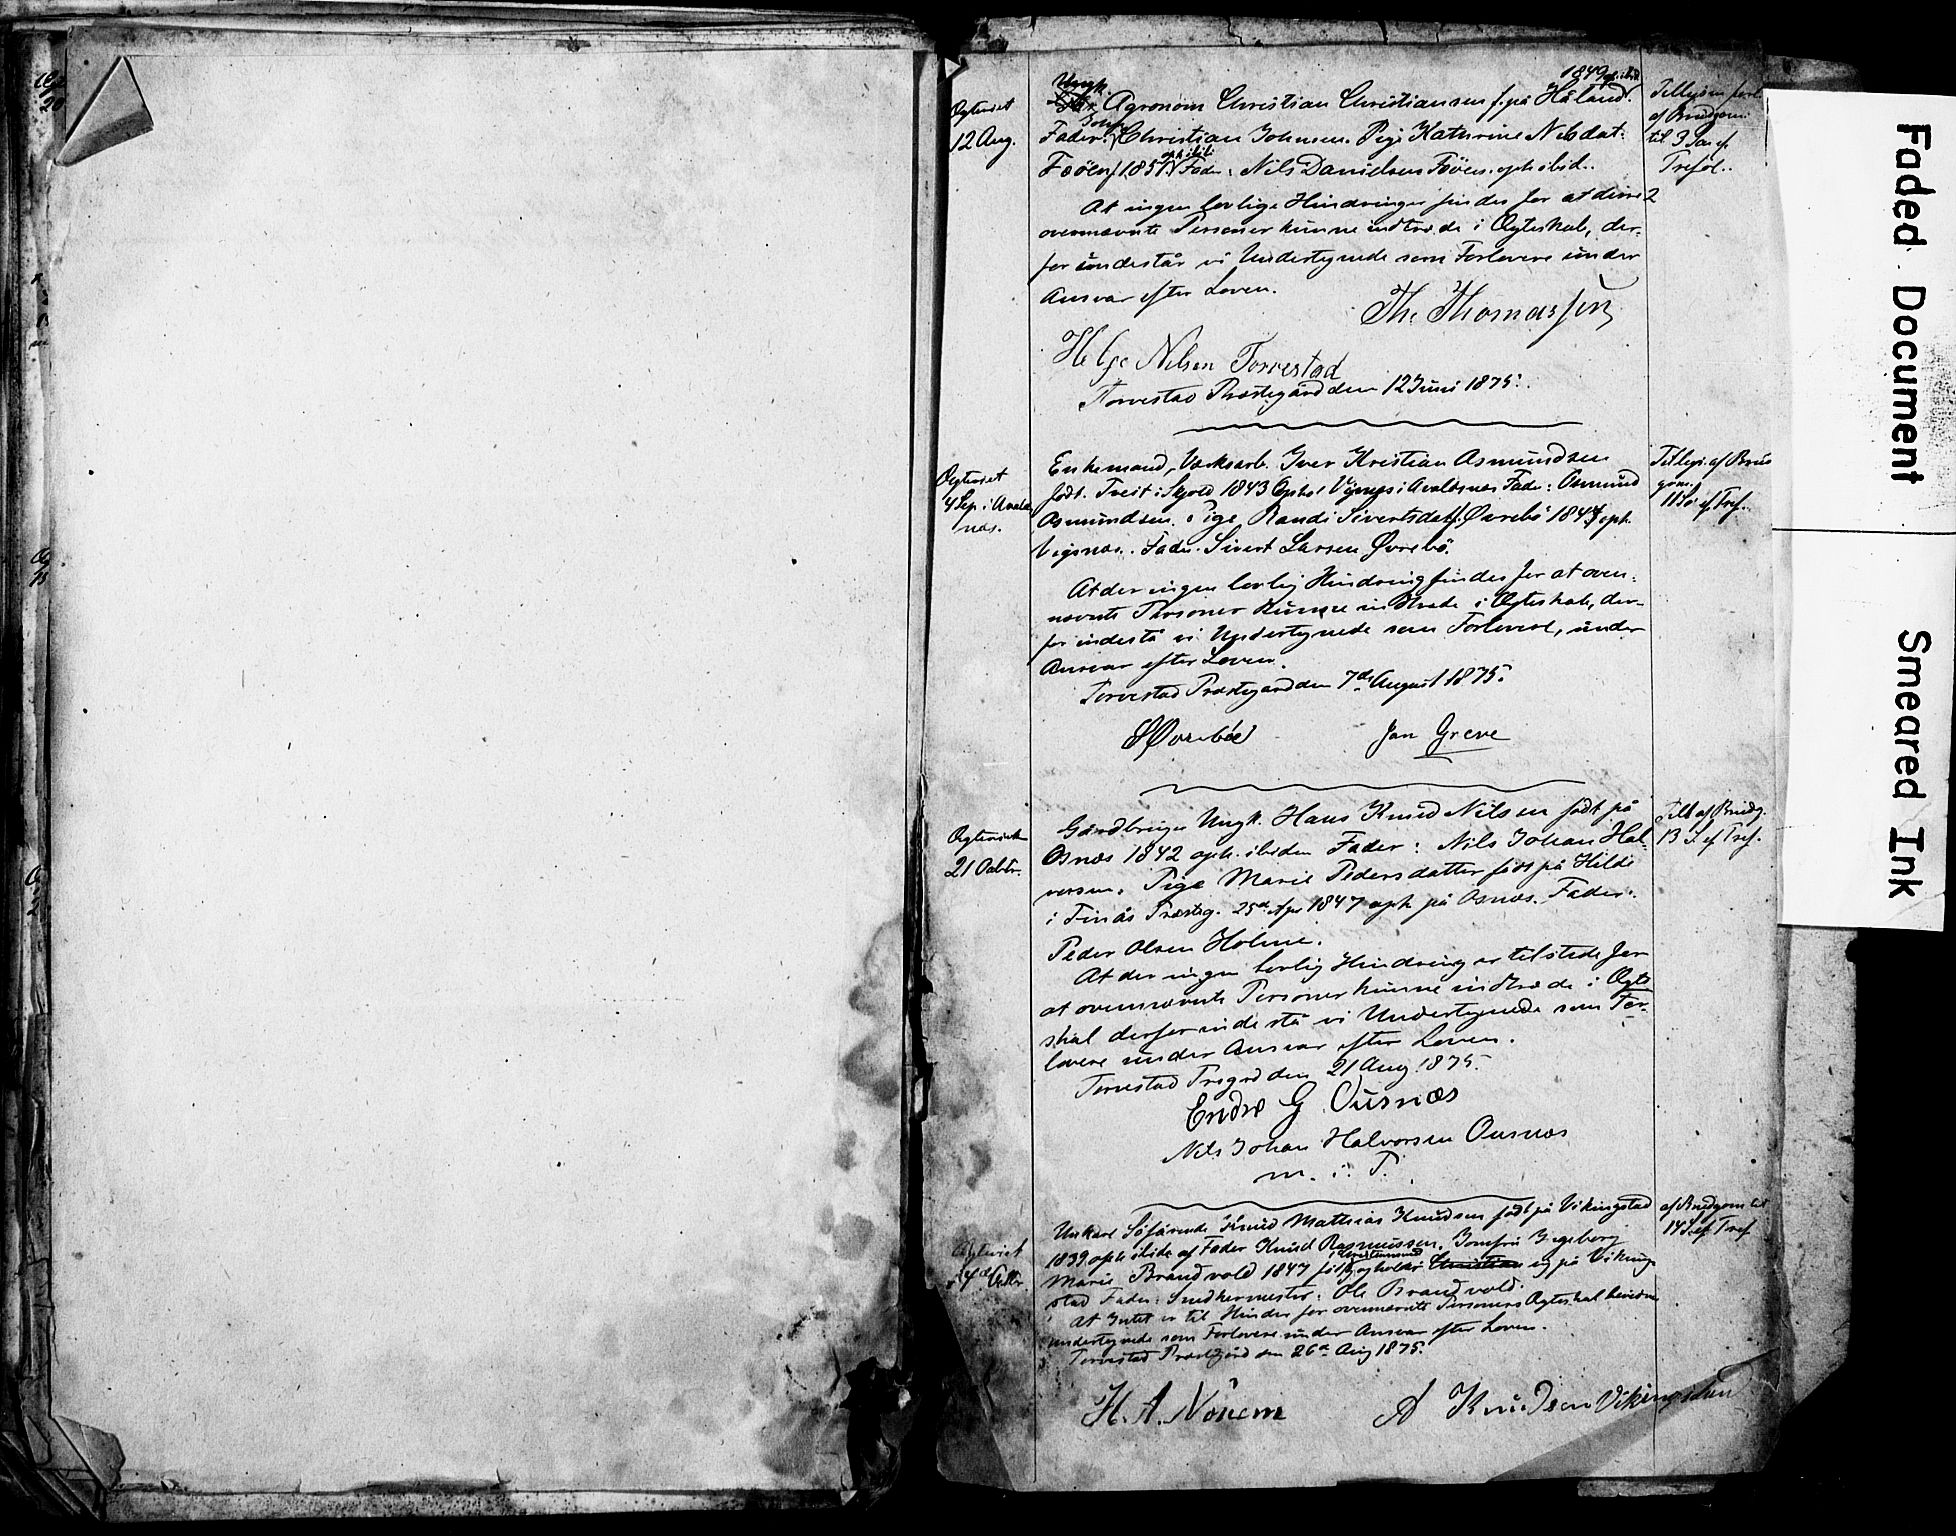 Ægteviet
12 Aug.
Ungk. Agronom Christian Christiansen f. på Håland 1849 oph. ibid.
Fader: Christian Johnsen. Pige Kathrine Nilsdat.
Føøen f 1851 oph ibid. Fader: Nils Danielsen Føøen oph ibid.
At ingen lovlige Hindringer findes for at disse 2
ovennævnte Personer kunne indtræde i Ægteskab, der-
for indestår vi Undertegnede som Forlovere under
Ansvar efter Loven.
Th. Thomassen
Helge Nilsen Torvestad
Torvestad Præstegård den 12 Juni 1875.
af Brudgom
til 3 S. ef.
Trefol.
Ægteviet
4 Sep. i Avalds
næs.
Enkemand, Værksarb. Iver Kristian Asmundsen
født. Treit i Skjold 1843 Oph. Vigsnes i Avaldsnæs Fader: Asmund
Asmundsen. Pige Randi Sivertsdat f. Øvrebö 1847 oph.
Vigsnæs. Fader. Sivert Larsen Øvrebö.
At der ingen lovlig Hindring findes for at oven-
nævnte Personer kunne indtræde i Ægteskab, der-
for indestå vi Undertegnede som Forlovere, under
Ansvar efter Loven.
Torvestad Præstegaard den 7de August 1875.
Øvrebøe Jan Greve
Tillys. af Brud
gom.
11 Sö. ef Tref.
Ægteviet
21 Octbr.
Gårdbruger Ungk. Hans Knud Nilsen født på
Osnæs 1842 oph. ibiden Fader: Nils Johan Hal-
vorsen. Pige Marie Pedersdatter født på Hilde
i Finås Præsteg. 25de Apr 1847 oph på Osnæs. Fader:
Peder Olsen Holme.
At der ingen lovlig Hindring er tilstede for
at ovennævnte Personer kunne indtræde i Ægte
skab derfor indestå vi Undertegnede som For-
lovere under Ansvar efter Loven.
Torvestad Prsgrd den 21 Aug 1875.
Endre G. Ousnæs
Nils Johan Halvorsen Ousnæs
m. i. P.
Till. af Brudg.
13 S. ef Tref.
Ægteviet
Octbr.
Unkarl Söfarende Knud Mathias Knudsen født på Vikingstad
1839 oph ibide af Fader Knud Rasmussen. Jomfru Ingeborg
Marie Brandvold 1847 født i Christiansund og på Viking-
stad Fader: Snedkermester: Ole Brandvold.
At Intet er til Hinder for ovennævnte Personers Ægteskab bevidne
undertegnede som Forlovere under Ansvar efter Loven.
Torvestad Præstegård den 26de Aug 1875.
H. A. Nönem A Knudsen Vikingstad
af Brudgom til
14 S. ef Tref
Faded Document
Smeared Ink